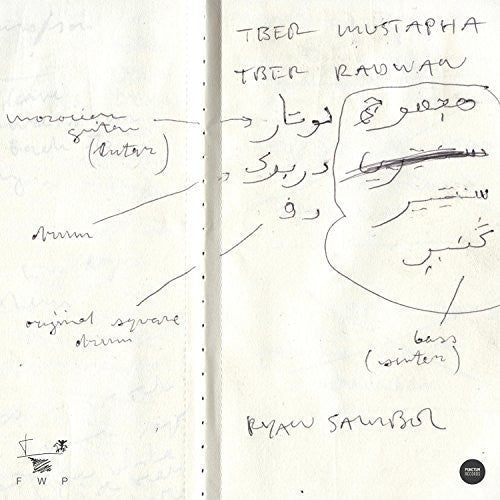 TBER MUSTAPHA
TBER RADWAN
moroccan
guitar
(lutar)
لوتار
دربوك
دف
سنتير
گنبر
drum
original square
drum
bass
(sinter)
RYAN SAMBOL
FWP
PUNCTUM
RECORDS